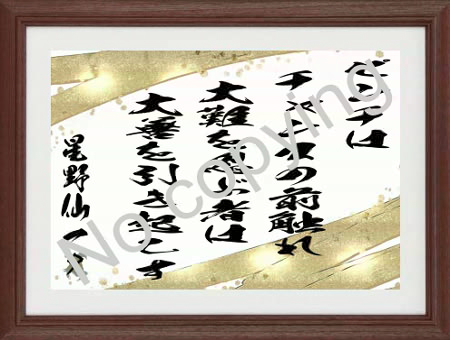 ピンチは
チャンスの前触れ
大難を忍ぶ者は
大善を引き起こす
星野仙一
No copying